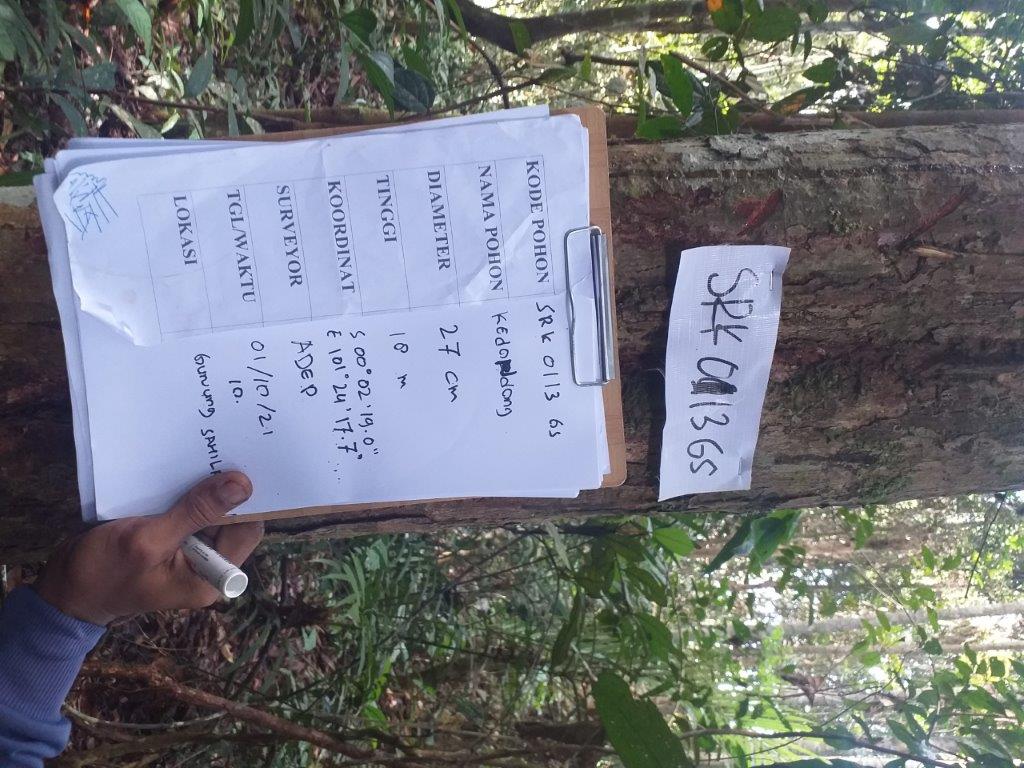 SRK 011365
KODE POHON SRK 0113 GS
NAMA POHON Kedondong
DIAMETER 27 cm
TINGGI 18 m
KOORDINAT S 00° 02' 19.0"
E 101° 24' 17.7"
SURVEYOR ADEP
TGL/WAKTU 01/10/21
10.
LOKASI Gunung SAHIL